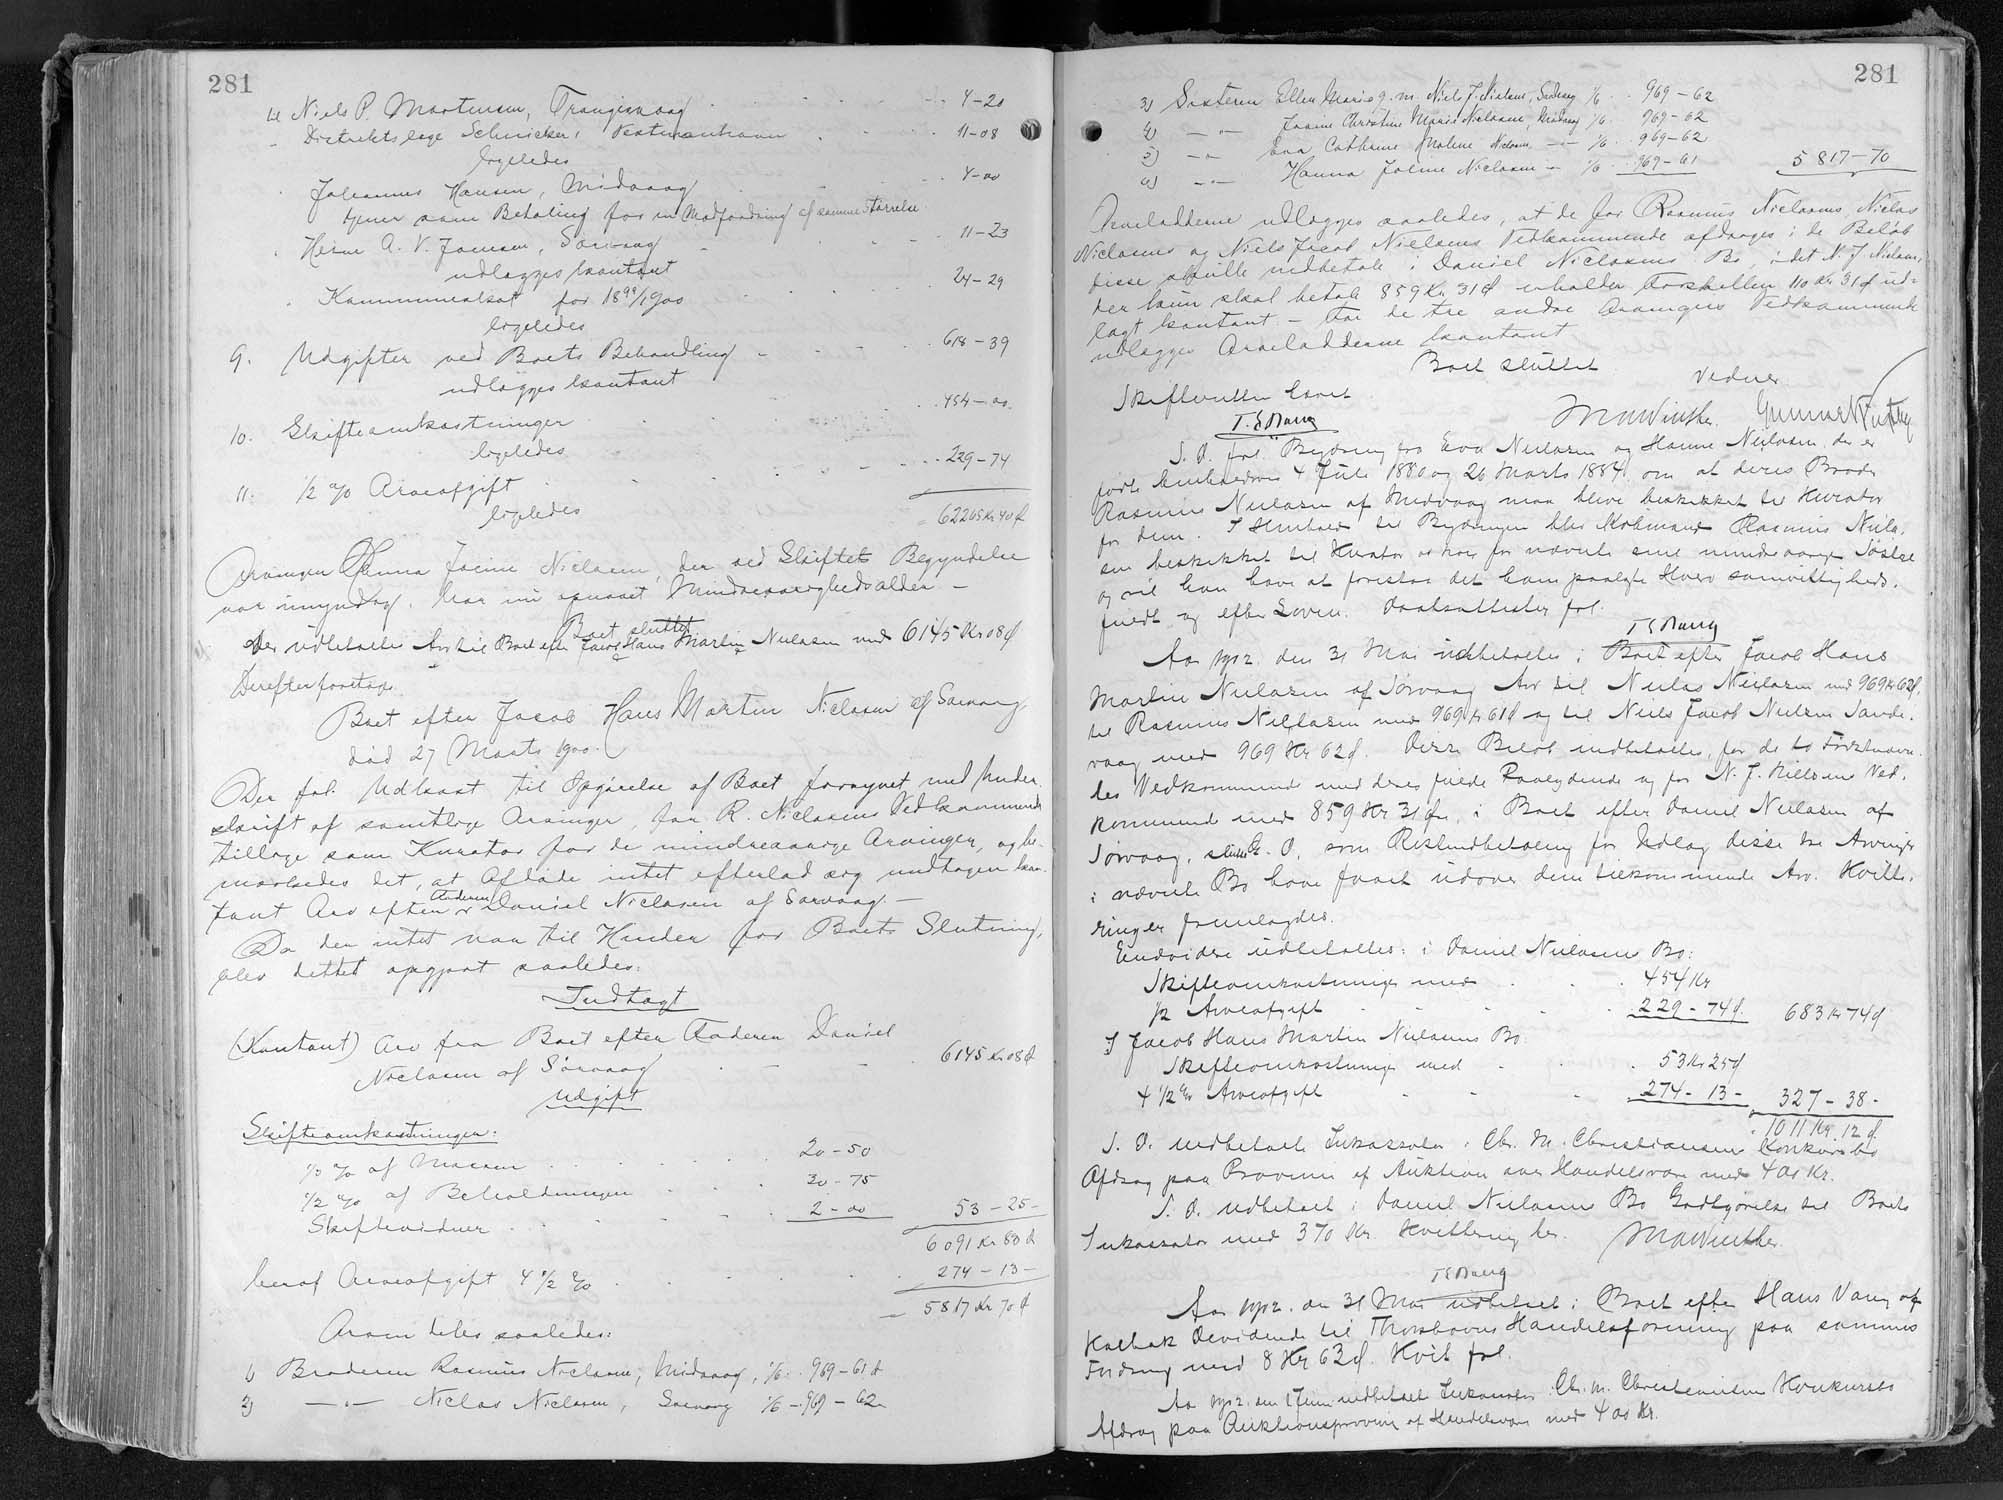 281
til Niels P. Mortensen, Trangisvaag 4-20
- Distriktslæge Schmicker, Vestmanhavn 11-08
ligeledes
Johannes Hansen, Midvaag 4-00
tjener som Betaling for en Modfordring af samme Størrelse
Herm A. V. Joensen, Sørvaag 11-23
udlægges kontant
Kommuneskat for 1899/1900 24-29
ligeledes
9. Udgifter ved Boets Behandling 618-39
udlægges kontant
10. Skifteomkostninger 454-00
ligeledes
11. 1/2 % Arveafgift 229-74
ligeledes
62265 Kr 40 d
Arvingen Hanna Joline Niclasen, der ved Skiftets Begyndelse
var umyndig, har nu opnaaet Mindreaarighedsalder -
Boet sluttet
Der udbetaltes Arv til Boet efter Jacob Hans Martin Niclasen med 6145 Kr 08 d
Derefter foretoges
Boet efter Jacob Hans Martin Niclasen af Sørvaag
død 27 Marts 1900.
Der fol. Udkast til Opgørelse af Boet forsynet med Under
skrift af samtlige Arvinger, for R. Niclasens Vedkommende
tillige som Kurator for de mindreaarige Arvinger, og be-
mærkedes det, at Afdøde intet efterlod sig undtagen kon-
tant Arv efter Faderen Daniel Niclasen af Sørvaag. -
Da der intet var til Hinder for Boets Slutning,
blev dettet opgjort saaledes:
Indtægt
(Kontant) Arv fra Boet efter Faderen Daniel
Niclasen af Sørvaag 6145 Kr 08 d
Udgift
Skifteomkostninger:
1/3 % af Massen 20-50
1/2 % af Beholdningen 30-75
Skiftevidner 2-00 53-25-
6091 Kr 83 d
heraf Arveafgift 4 1/2 % 274-13-
5817 Kr 70 d
Arven deles saaledes:
1) Broderen Rasmus Niclasen, Midvaag, 1/6 969-61 d
2) -"- Niclas Niclasen, Sørvaag 1/6 - 969-62
281
3) Søsteren Ellen Marie g. m. Niels J. Nielsen, 1/6 969-62
4) -"- Josine Christine Marie Niclasen, Midvaag 1/6 969-62
5) -"- Eva Cathrine Malene Niclasen -"- 1/6 969-62
6) -"- Hanna Joline Niclasen - 1/6 969-61 5817-70
Arvelodderne udlægges saaledes, at de for Rasmus Niclasens, Niclas
Niclasens og Niels Jacob Nielsens Vedkommende afdrages i de Beløb
disse skulle indbetale i Daniel Niclasens Bo, idet N. J. Nielsen,
der kun skal betale 859 Kr 31 d erholder Forskellen 110 Kr 31 d ud-
lagt kontant - For de tre andre Arvingers Vedkommende
udlægges Arvelodderne kontant
Boet sluttet
Skifteretten hævet Vidner
T. S. Bang MWinther
S. D. fol. Begæring fra Eva Niclasen og Hanne Niclasen, der er
født henholdsvis 4 Juli 1880 og 26 Marts 1884, om at deres Broder
Rasmus Niclasen af Midvaag maa blive beskikket til Kurator
for dem. I Henhold til Begæringen blev Kjøbmand Rasmus Nicla-
sen beskikket til Kurator for nævnte sine mindreaarige Søstre
og vil han have at forestaa det ham paalagte Hverv samvittigheds-
fuldt og efter Loven. Daabsattester fol.
T S Bang
Aar 1902. den 31 Mai udbetaltes i Boet efter Jacob Hans
Martin Niclasen af Sørvaag Arv til Niclas Niclasen med 969 Kr 62 d,
til Rasmus Niclasen med 969 Kr 61 d og til Niels Jacob Nielsen Sande-
vaag med 969 Kr 62 d. Disse Beløb indbetaltes, for de to Førstnævn-
tes Vedkommende med deres fulde Paalydende og for N. J. Nielsens Ved-
kommende med 859 Kr 31 d, i Boet efter Daniel Niclasen af
Sørvaag, sluttet S. D. som Restindbetaling for Udlæg disse tre Arvinger
i nævnte Bo have faaet udover dem tilkommende Arv. Kvitte-
ringer fremlagdes.
Endvidere udbetaltes: i Daniel Niclasens Bo:
Skifteomkostninger med 454 Kr
1/2 Arveafgift 229-74 d. 683 Kr 74 d
I Jacob Hans Martin Niclasens Bo:
Skifteomkostninger med 53 Kr 25 d
4 1/2 % Arveafgift 274-13- 327-38-
1011 Kr. 12 d.
S. D. indbetalt Inkassator i Chr. M. Christiansens Konkursbo
Afdrag paa Provenu af Auktion over Handelsvare med 400 Kr.
S. D. udbetalt i Daniel Niclasens Bo Godtgørelse til Boets
Inkassator med 370 Kr. Kvittering her. MWinther
T S Bang
Aar 1902. den 31 Mai udbetalt i Boet efter Hans Vang af
Kolbak Devidende til Thorshavns Handelsforening paa sammes
Fordring med 8 Kr 63 d. Kvit fol.
Aar 1902. den 1 Juni indbetalt Inkassator Chr. M. Christiansens Konkursbo
Afdrag paa Auktionsprovenu af Handelsvare med 400 Kr.